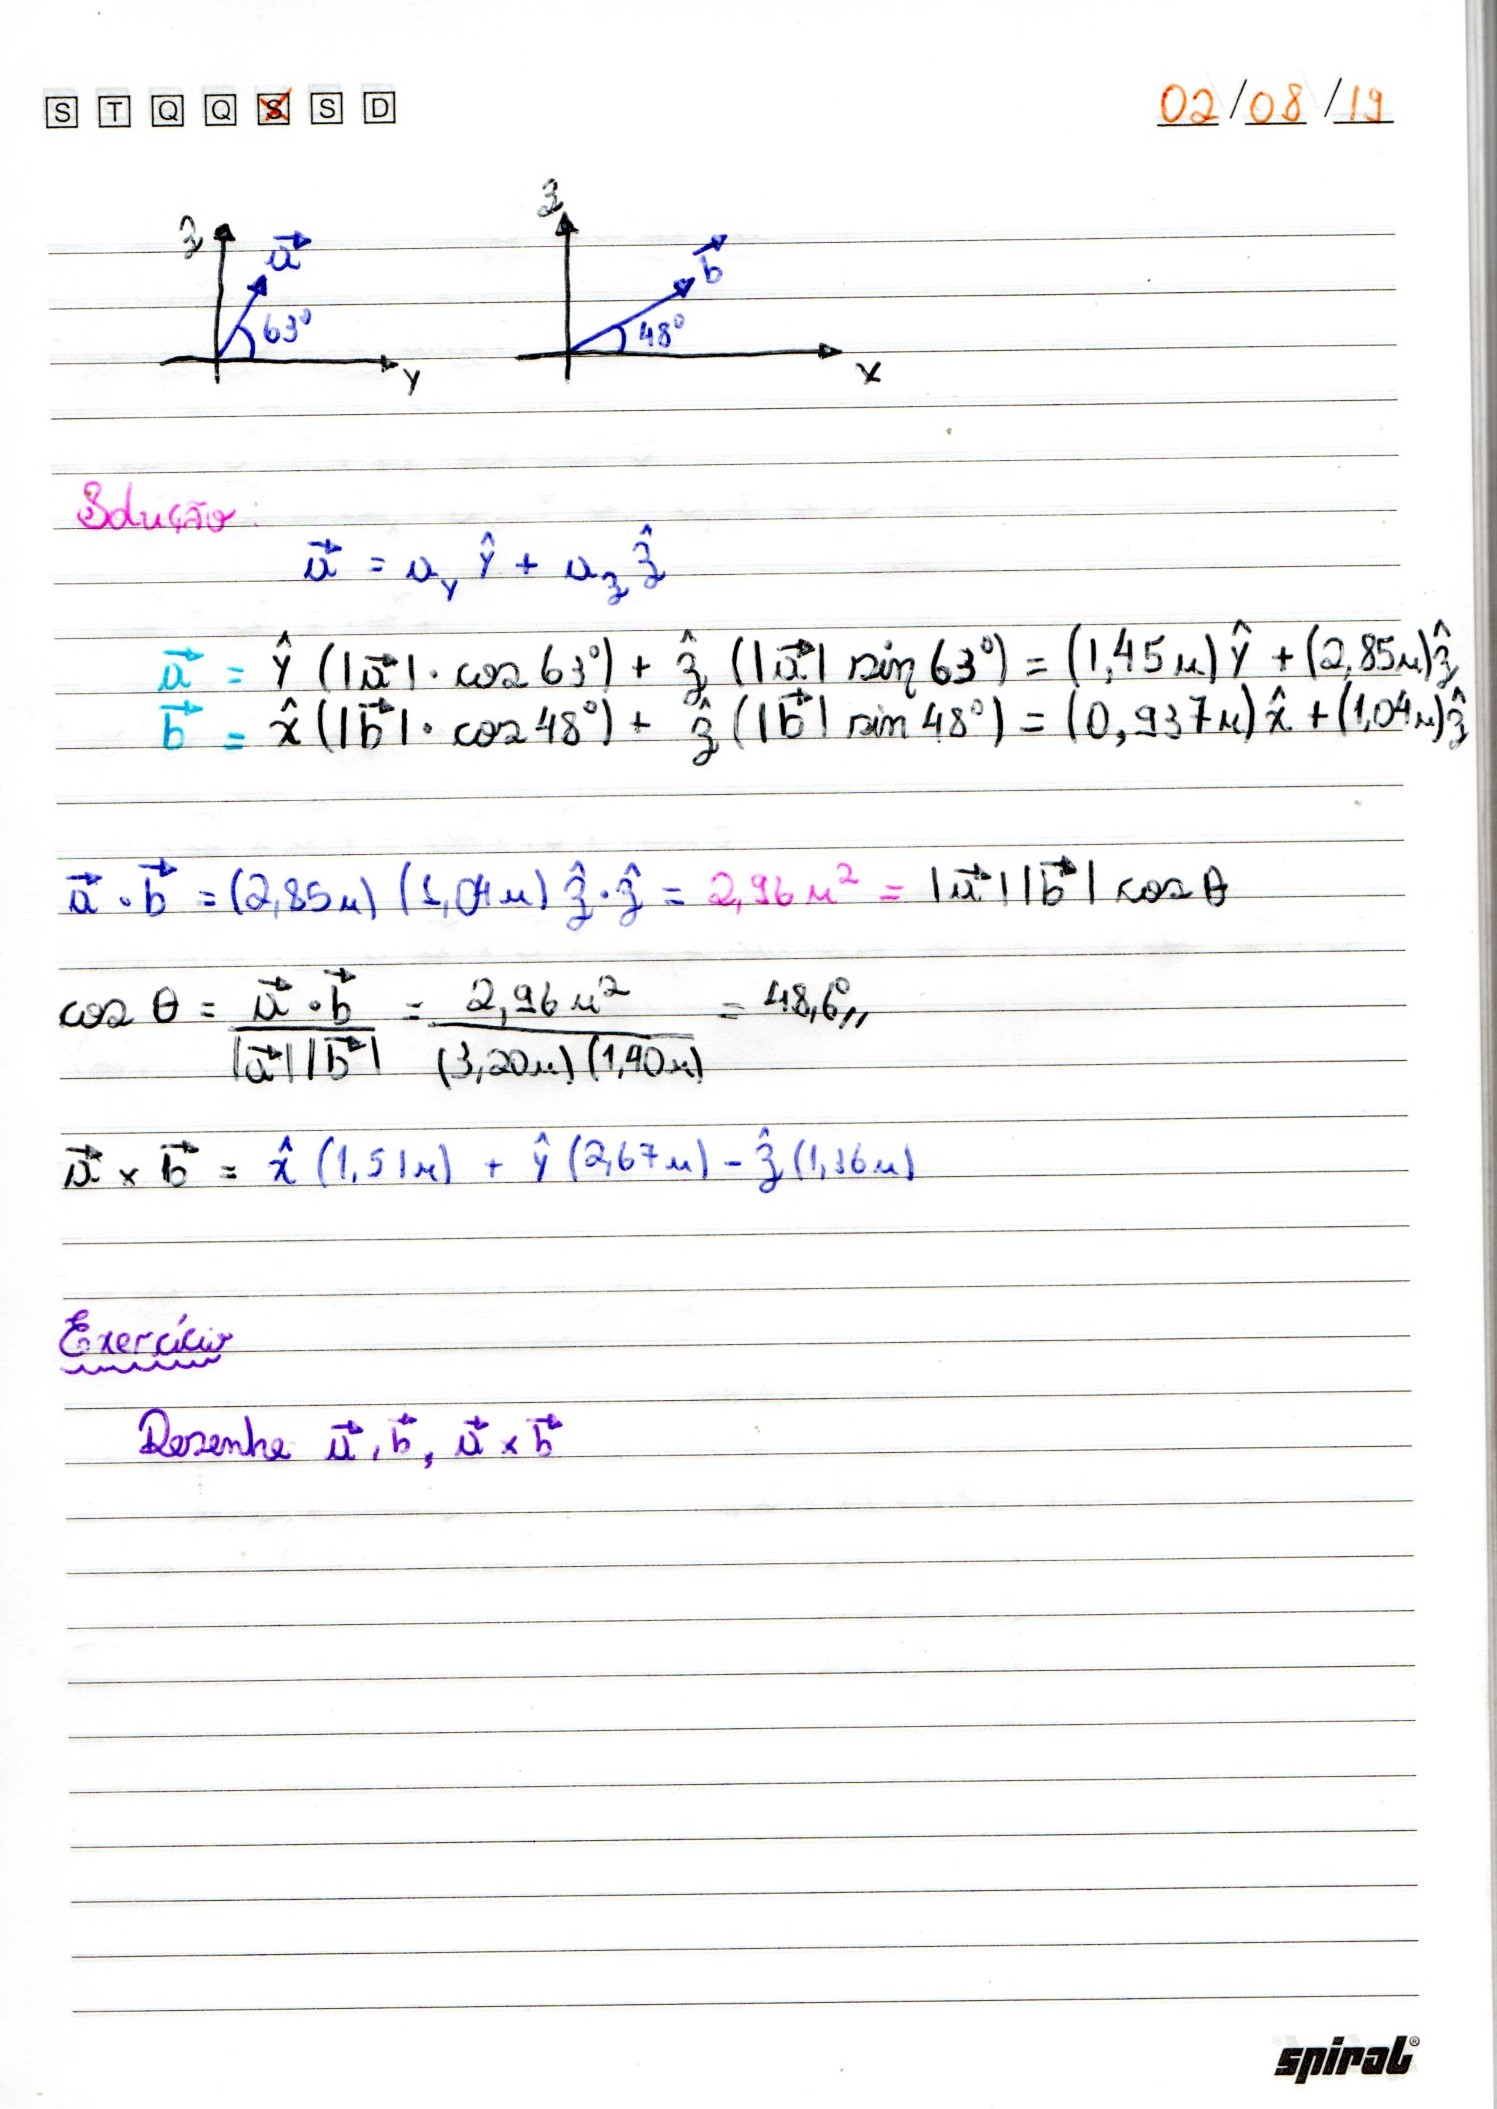 S T Q Q S S D 02/08/19
z a⃗ 63° y
z b⃗ 48° x
Solução:
a⃗ = a_y ŷ + a_z ẑ
a⃗ = ŷ (|a⃗| · cos 63°) + ẑ (|a⃗| sin 63°) = (1,45u) ŷ + (2,85u) ẑ
b⃗ = x̂ (|b⃗| · cos 48°) + ẑ (|b⃗| sin 48°) = (0,937u) x̂ + (1,04u) ẑ
a⃗ · b⃗ = (2,85u) (1,04u) ẑ · ẑ = 2,96u² = |a⃗| |b⃗| cos θ
cos θ = a⃗ · b⃗ / |a⃗| |b⃗| = 2,96u² / (3,20u) (1,40u) = 48,6°,,
a⃗ × b⃗ = x̂ (1,51u) + ŷ (2,67u) - ẑ (1,36u)
Exercício
Desenhe a⃗, b⃗, a⃗ × b⃗
spiral®